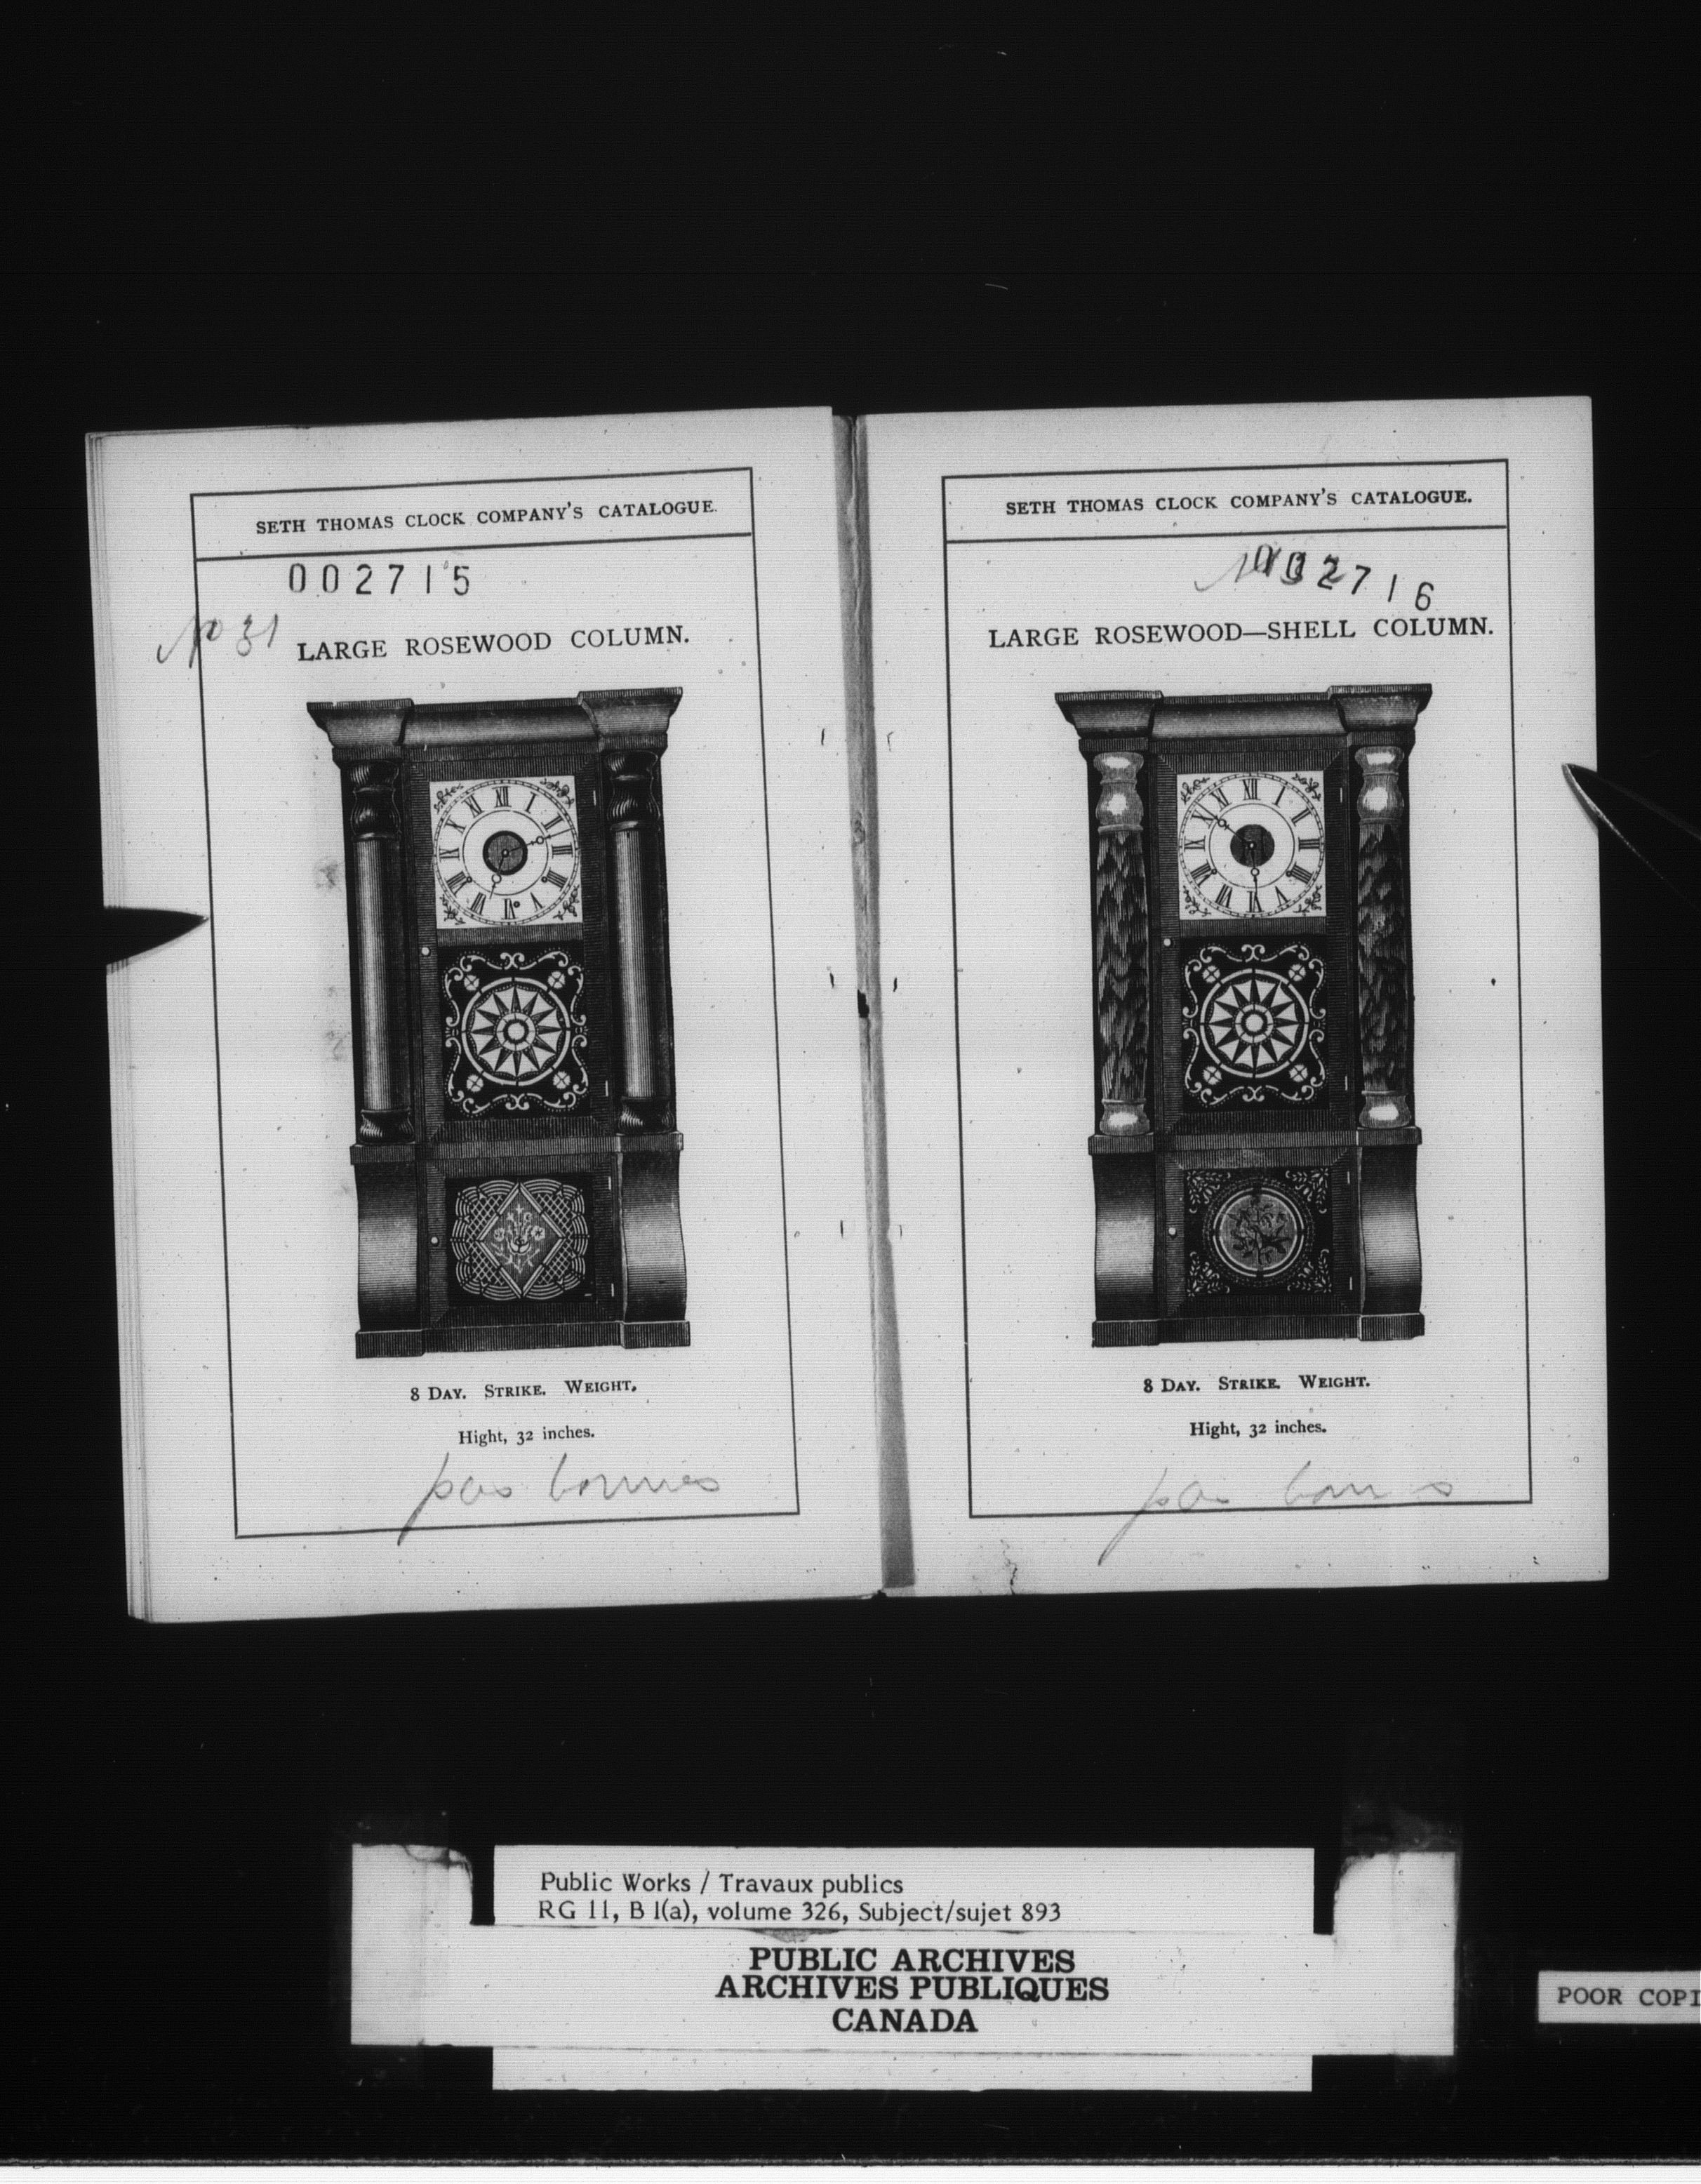 SETH THOMAS CLOCK COMPANY'S CATALOGUE.
002715
No 31
LARGE ROSEWOOD COLUMN.
8 DAY. STRIKE. WEIGHT.
Hight, 32 inches.
pas bonnes
SETH THOMAS CLOCK COMPANY'S CATALOGUE.
2716
LARGE ROSEWOOD—SHELL COLUMN.
8 DAY. STRIKE. WEIGHT.
Hight, 32 inches.
Public Works / Travaux publics
RG 11, B 1(a), volume 326, Subject/sujet 893
PUBLIC ARCHIVES
ARCHIVES PUBLIQUES
CANADA
POOR COPI